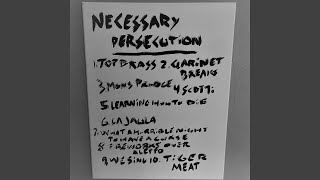 NECESSARY
PERSECUTION
1. TOP BRASS 2. CLARINET
BREAKS
3 MOMS 4 SCOTTI
5 LEARNING HOW TO DIE
6 LA JAULA
7. WHAT A HORRIBLE NIGHT
TO HAVE A CURSE
8 FIREWORKS OVER
ALEPPO
9 WESING 10. TIGER
MEAT